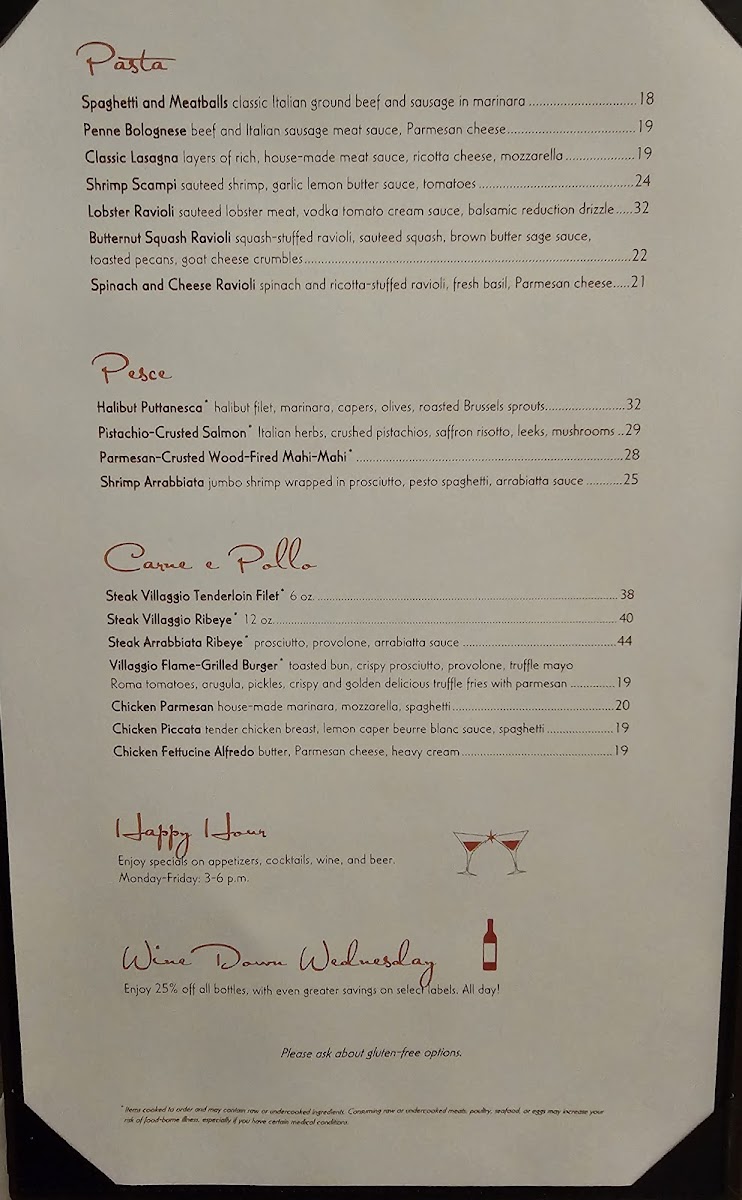 Pasta
Spaghetti and Meatballs classic Italian ground beef and sausage in marinara ............................18
Penne Bolognese beef and Italian sausage meat sauce, Parmesan cheese.................................19
Classic Lasagna layers of rich, house-made meat sauce, ricotta cheese, mozzarella ..................19
Shrimp Scampi sauteed shrimp, garlic lemon butter sauce, tomatoes ........................................24
Lobster Ravioli sauteed lobster meat, vodka tomato cream sauce, balsamic reduction drizzle.....32
Butternut Squash Ravioli squash-stuffed ravioli, sauteed squash, brown butter sage sauce,
toasted pecans, goat cheese crumbles.....................................................................................22
Spinach and Cheese Ravioli spinach and ricotta-stuffed ravioli, fresh basil, Parmesan cheese.....21
Pesce
Halibut Puttanesca* halibut filet, marinara, capers, olives, roasted Brussels sprouts.......................32
Pistachio-Crusted Salmon* Italian herbs, crushed pistachios, saffron risotto, leeks, mushrooms ..29
Parmesan-Crusted Wood-Fired Mahi-Mahi* ...........................................................................28
Shrimp Arrabbiata jumbo shrimp wrapped in prosciutto, pesto spaghetti, arrabiatta sauce ...........25
Carne e Pollo
Steak Villaggio Tenderloin Filet* 6 oz. ......................................................................................38
Steak Villaggio Ribeye* 12 oz..................................................................................................40
Steak Arrabbiata Ribeye* prosciutto, provolone, arrabiatta sauce ............................................44
Villaggio Flame-Grilled Burger* toasted bun, crispy prosciutto, provolone, truffle mayo
Roma tomatoes, arugula, pickles, crispy and golden delicious truffle fries with parmesan .............19
Chicken Parmesan house-made marinara, mozzarella, spaghetti................................................20
Chicken Piccata tender chicken breast, lemon caper beurre blanc sauce, spaghetti ...................19
Chicken Fettucine Alfredo butter, Parmesan cheese, heavy cream............................................19
Happy Hour
Enjoy specials on appetizers, cocktails, wine, and beer.
Monday-Friday: 3-6 p.m.
Wine Down Wednesday
Enjoy 25% off all bottles, with even greater savings on select labels. All day!
Please ask about gluten-free options.
* Items cooked to order and may contain raw or undercooked ingredients. Consuming raw or undercooked meats, poultry, seafood, or eggs may increase your
risk of food-borne illness, especially if you have certain medical conditions.